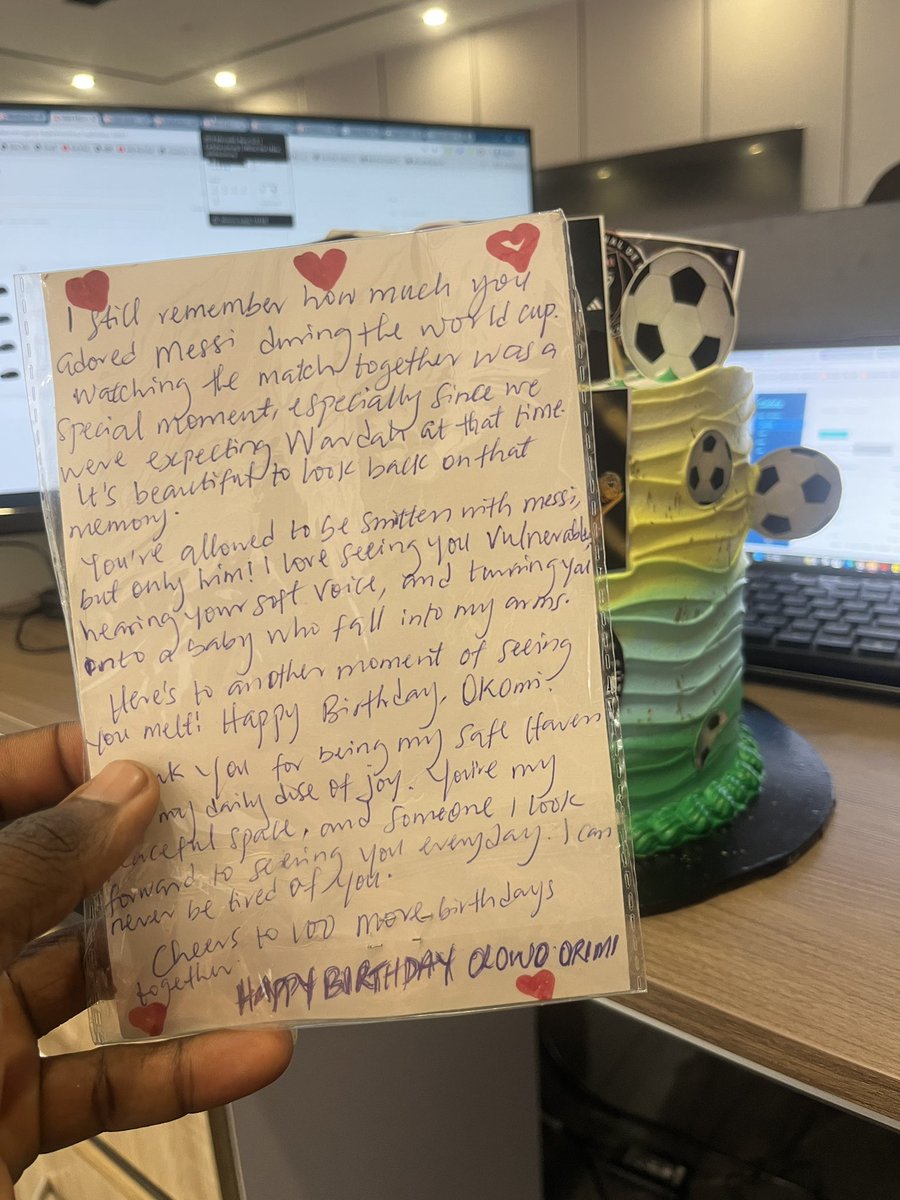 I still remember how much you
adored Messi during the world cup.
Watching the match together was a
special moment, especially since we
were expecting Wardah at that time.
It's beautiful to look back on that
memory.
You're allowed to be smitten with messi,
but only him! I love seeing you vulnerable,
hearing your soft voice, and turning you
into a baby who fall into my arms.
Here's to another moment of seeing
you melt! Happy Birthday, Okomi.
you for being my safe Haven
my daily dose of joy. You're my
space, and someone I look
forward to seeing you everyday. I can
never be tired of you.
Cheers to 100 more birthdays
together.
HAPPY BIRTHDAY OLOWO ORIMI